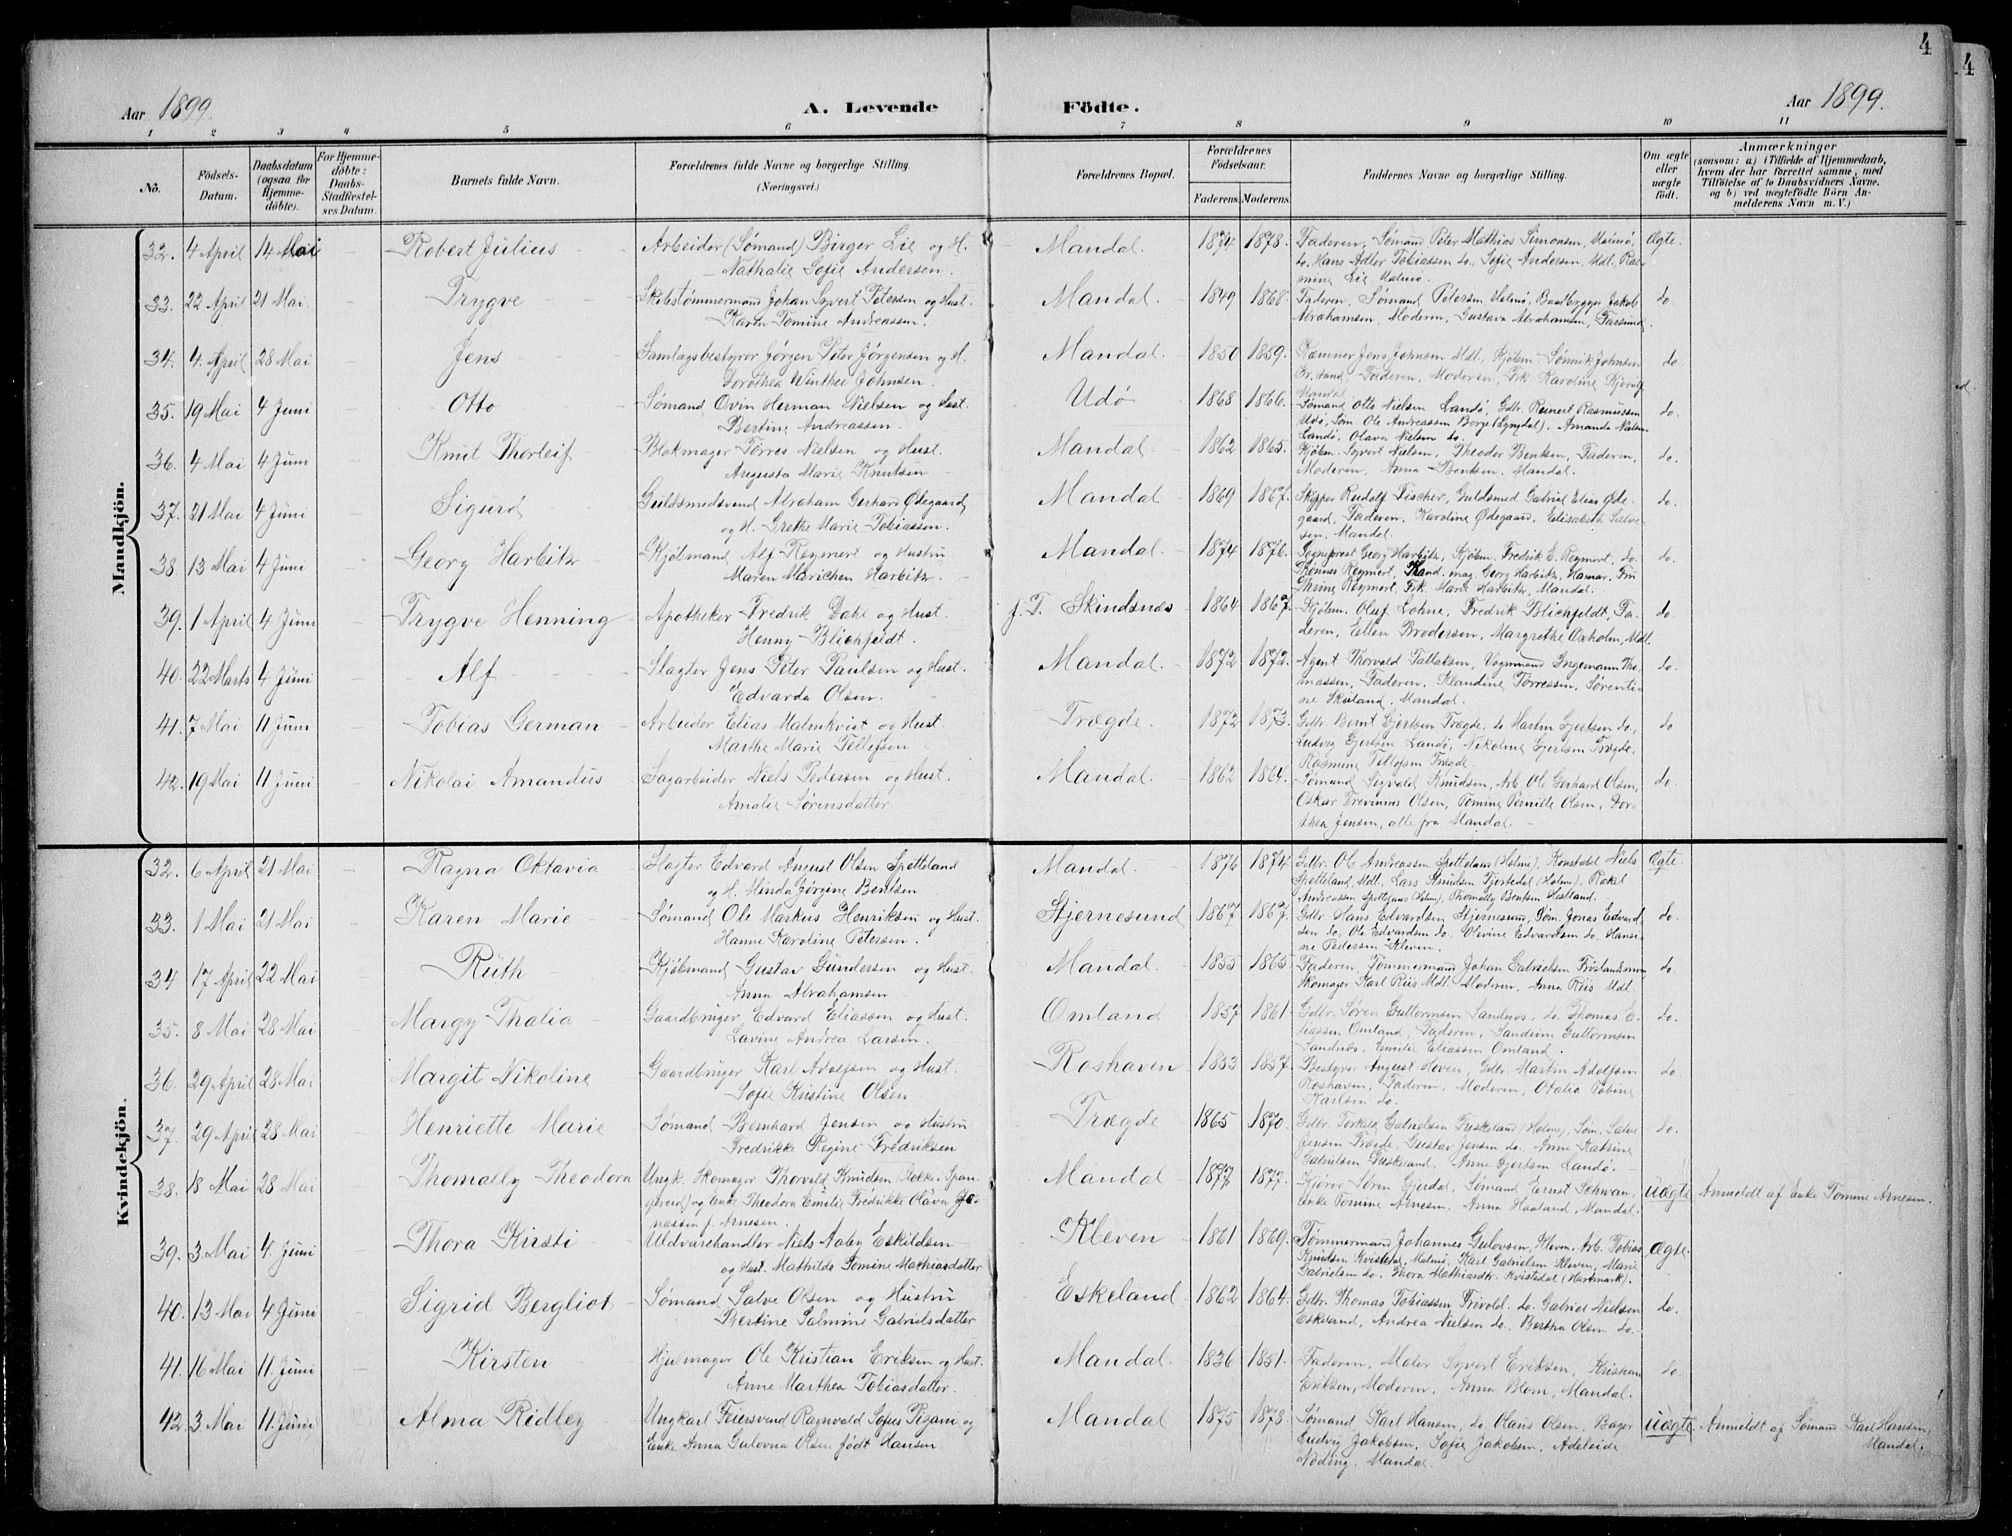 4
4
Aar 1899. A. Levende Födte. Aar 1899.
1 2 3 4 5 6 7 8 9 10 11
No. Födsels-Datum. Daabsdatum (ogsaa for Hjemme-döbte). For Hjemme-döbte: Daabs-Stadfæstel-ses Datum. Barnets fulde Navn. Forældrenes fulde Navne og borgerlige Stilling (Næringsvei.) Forældrenes Bopæl. Forældrenes Födselsaar. Faderens Moderens Faddernes Navne og borgerlige Stilling. Om ægte eller uægte födt. Anmærkninger (saasom: a) i Tilfælde af Hjemmedaab, hvem der har forrettet samme, med Tilföielse af to Daabsvidners Navne, og b) ved uægtefödte Börn An-melderens Navn m. V.)
Mandkjön.
32. 4 April 14 Mai Robert Julius Arbeider (Sømand) Birger Lie og H. Mandal. 1874 1878. Faderen, Sømand Peter Mathias Simonsen, Malmø, Ægte.
Nathalie Sofie Andersen. do. Hans Adler Tobiassen do., Sofie Andersen, Mdl. Ras-
mine Lie Malmø.
33. 22 April 21 Mai. Trygve Skibstømmermand Johan Syvert Petersen og Hust. Mandal. 1849 1868. Faderen, Sømand Petersen, Malmø, Baadbygger Jakob do.
Karen Tomine Andreassen. Abrahamsen, Moderen, Gustava Abrahamsen, Farsund.
34. 4. April 28 Mai Jens Samlagsbestyrer Jørgen Peter Jørgensen og H. Mandal. 1850 1859. Kæmner Jens Johnsen Mdl, Kjøbm. Sønnik Johnsen do.
Dorothea Winther Johnsen. Kr.sand, Faderen, Moderen, Frk. Karoline Kjørvig
Mandal
35. 19 Mai 4 Juni Otto Sømand Ovin Herman Nielsen og Hust. Udø 1868 1866. Sømand Otto Nielsen Landø, Gdbr. Reinert Rasmussen do.
Bertine Andreassen. Udø, Søm. Ole Andreassen Borge (Lyngdal). Amanda Nielsen
Landø, Olava Nielsen do.
36. 4 Mai 4 Juni Knut Thorleif Blokmager Tørres Nielsen og Hust. Mandal 1862 1865. Kjøbm. Syvert Nielsen, Theodor Bentsen, Faderen, do.
Augusta Marie Knutsen Moderen, Anna Bentsen. Mandal.
37. 21 Mai 4 Juni Sigurd Guldsmedsvend Abraham Gerhard Ødegaard Mandal 1869 1867. Skipper Rudolf Fischer, Guldsmed Gabriel Elias Øde- do.
og H. Grethe Marie Tobiassen. gaard, Faderen, Karoline Ødegaard, Elisabeth Salve-
sen. Mandal.
38. 13 Mai 4 Juni Georg Harbitz Kjøbmand Alf Regmert og Hustru Mandal 1874 1876. Sogneprest Georg Harbitz, Kjøbm. Fredrik E. Regmert, do. do.
Maren Marichen Harbitz. Hannes Regmert, Kand. mag. Georg Harbitz, Hamar, Fru
Thrine Regmert, Frk. Marie Harbitz, Mandal.
39. 1 April 4 Juni Trygve Henning Apotheker Fredrik Dahl og Hust. f. T. Skindsnæs 1864 1867. Kjøbm. Oluf Lohne, Fredrik Blichfeldt, Fa- do.
Henny Blichfeldt. deren, Ellen Brodersen, Margrethe Oxholm, Mdl.
40. 22 Marts 4 Juni Alf Slagter Jens Peter Paulsen og Hust. Mandal. 1872 1872. Agent Thorvald Tallaksen, Vognmand Ingemann Tho- do.
Edvarda Olsen. massen, Faderen, Klandine Tørressen, Sørenti-
ne Skuland. Mandal.
41. 7 Mai 11 Juni Tobias German Arbeider Elias Malmkvist og Hust. Trægde. 1872 1873. Gdbr. Bernt Gjertsen Trægde, do Martin Gjertsen do, do
Marthe Marie Tellefsen Ludvig Gjertsen Landø, Nikoline Gjertsen Trægde,
Rasmine Tellefsen Trægde.
42. 19 Mai 11 Juni Nikolai Amandus Sagarbeider Niels Pedersen og Hust. Mandal. 1862 1864. Sømand Sigvald Knudsen, Arb. Ole Gerhard Olsen, do.
Amalie Sørensdatter Oskar Severinus Olsen, Tomine Pernille Olsen, Dor-
thea Jensen, alle fra Mandal.
Kvindekjön.
32. 6 April 21 Mai Ragna Oktavia Slagter Edvard August Olsen Spetteland Mandal. 1876 1874. Gdbr. Ole Andreassen Spetteland (Holme), Konstabel Niels Ægte
og H. Minda Jørgine Bentsen Spetteland, Mdl. Lars Knudsen Fjortedal (Holme). Rakel
Andreassen Spetteland (Holm), Thomally Bentsen Hestland.
33. 1 Mai 21 Mai Karen Marie Sømand Ole Markus Henriksen og Hust. Stjernesund 1867 1867. Gdbr. Hans Edvardsen Stjernesund, Søm. Jonas Edvard- do.
Hanne Karoline Petersen. sen do, Ole Edvardsen do. Olevine Edvardsen do, Hansi-
ne Pedersen Kleven.
34 17 April 22 Mai Ruth Kjøbmand Gustav Gundersen og Hust. Mandal. 1855 1865. Faderen, Tømmermand Johan Gabrielsen Frøslandsmoen do.
Anna Abrahamsen Skomager Karl Riis Mdl. Moderen, Anna Riis Mdl.
35. 8 Mai 28 Mai Margy Thalia Gaardbruger Edvard Eliassen og Hust. Omland 1857 1861. Gdbr. Søren Guttormsen Sandnes, do. Thomas E- do.
Lavine Andrea Larsen. liassen Omland, Faderen, Sandrine Guttormsen
Sandnes, Emilie Eliassen Omland.
36. 29 April 28 Mai Margit Nikoline Gaardbruger Karl Adolfsen og Hust. Roshaven 1853 1857. Bestyrer August Hoven, Gdbr. Martin Adolfsen do.
Sofie Kristine Olsen Roshaven, Faderen, Moderen, Otalia Tobine
Karlsen do.
37. 29 April 28 Mai Henriette Marie Sømand Bernhard Jensen og Hustru Trægde 1865 1870. Gdbr. Torkild Gabrielsen Fuskeland (Holme), Søm. Salve do.
Fredrikke Regine Fredriksen Jensen Trægde, Gustav Jensen do. Anne Katrine
Gabrielsen Fuskeland. Anne Gjertsen Landø.
38. 18 Mai 28 Mai Thomally Theodora Ungk. Skomager Thorvald Knudsen Stokke (Span- Mandal 1877 1877. Kjører Søren Gjerdal, Sømand Ernst Schwan, Uægte Anmeldt af Enke Tomine Arnesen.
gereid) og Enke Theodora Emilie Fredrikke Olava Jo- Enke Tomine Arnesen. Anna Haaland, Mandal.
nassen f. Arnesen.
39. 3 Mai 4. Juni Thora Kirsti Uldvarehandler Niels Aaby Eskildsen Kleven 1861 1869. Tømmermand Johannes Gulovsen, Kleven, Arb. Tobias Ægte.
og Hust. Mathilde Tomine Mathiasdatter Knudsen Kvistedal, Malmø, Karl Gabrielsen Kleven, Marie
Gabrielsen do. Thora Mathiasdtr. Kvistedal (Hartmark).
40. 13 Mai 4 Juni Sigrid Bergliot Sømand Salve Olsen og Hustru Eskeland 1862 1864. Gdbr. Thomas Tobiassen, Frivold. do. Gabriel Nielsen do.
Bertine Salmine Gabrielsdatter Eskeland, Andrea Nielsen do. Bertha Olsen do.
41. 16 Mai 11. Juni Kirsten Hjulmager Ole Kristian Eriksen og Hust. Mandal. 1836 1851. Faderen, Maler Syvert Eriksen, Kristian do.
Anne Marthea Tobiasdatter. Eriksen, Moderen. Anna Blom, Mandal.
42. 3 Mai 11. Juni Alma Ridley Ungkarl Feiersvend Ragnvald Sofus Pizani og Mandal 1875 1878. Sømand Karl Hansen, do. Olaus Olsen, Bager Uægte. Anmeldt af Sømand Karl Hansen,
Enke Anna Gulovna Olsen født Hansen. Ludvig Jakobsen. Sofie Jakobsen, Adelaide Mandal.
Nøding, Mandal.